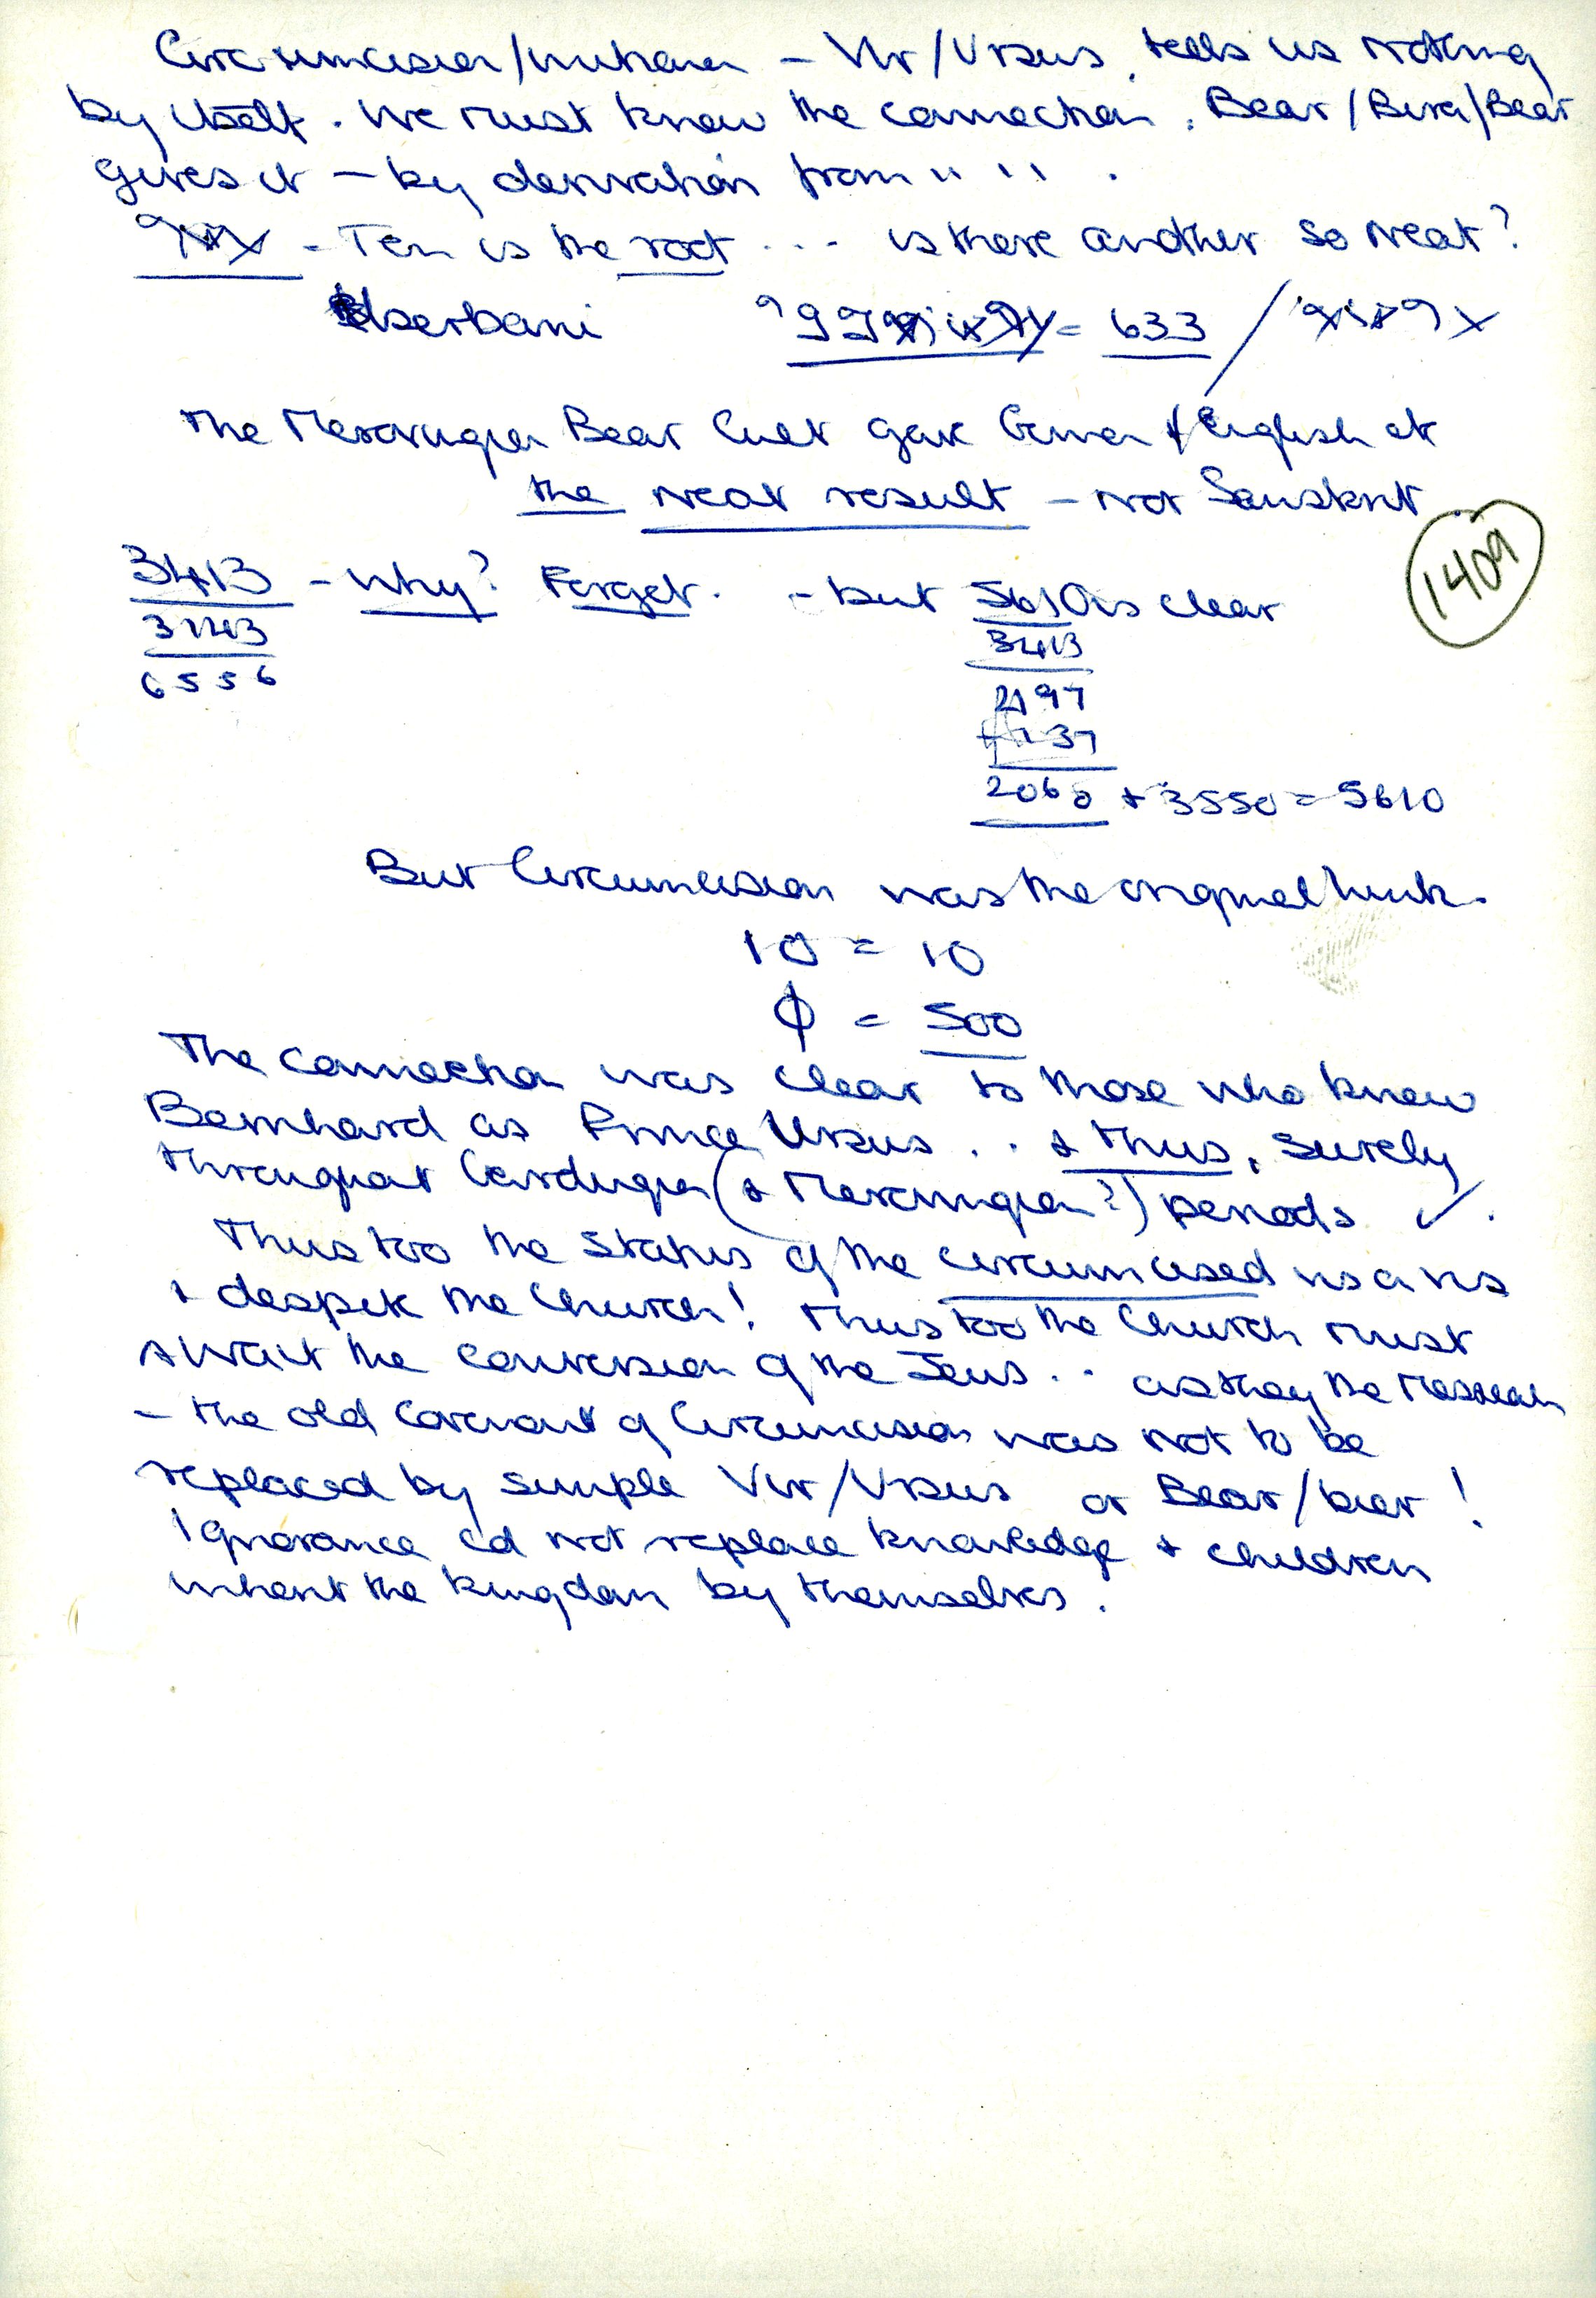 Circumcision/initiation – Vir/Ursus, tells us nothing
by itself. We must know the connection. Bear/Bira/Bear
gives it – by derivation from " " .
– Ten is the root ... is there another so neat?
= 633 /
The Merovingian Bear Cult gave German & English etc
the neat result – not Sanskrit.
1409
3413 – Why? Forget. – but 5610 is clear
3143
6556
3413
2197
137
2060 + 3550 = 5610
But Circumcision was the original link.
10 = 10
ϕ = 500
The connection was clear to those who knew
Bernhard as Prince Ursus .. & thus, surely
throughout (& Merovingian?) periods ✓.
Thus too the status of the circumcised vis a vis
& despite the Church! Thus too the Church must
await the conversion of the Jews .. as they the Messiah
– the old Covenant of Circumcision was not to be
replaced by simple Vir/Ursus or Bear/bier!
Ignorance cd not replace knowledge & children
inherit the kingdom by themselves!